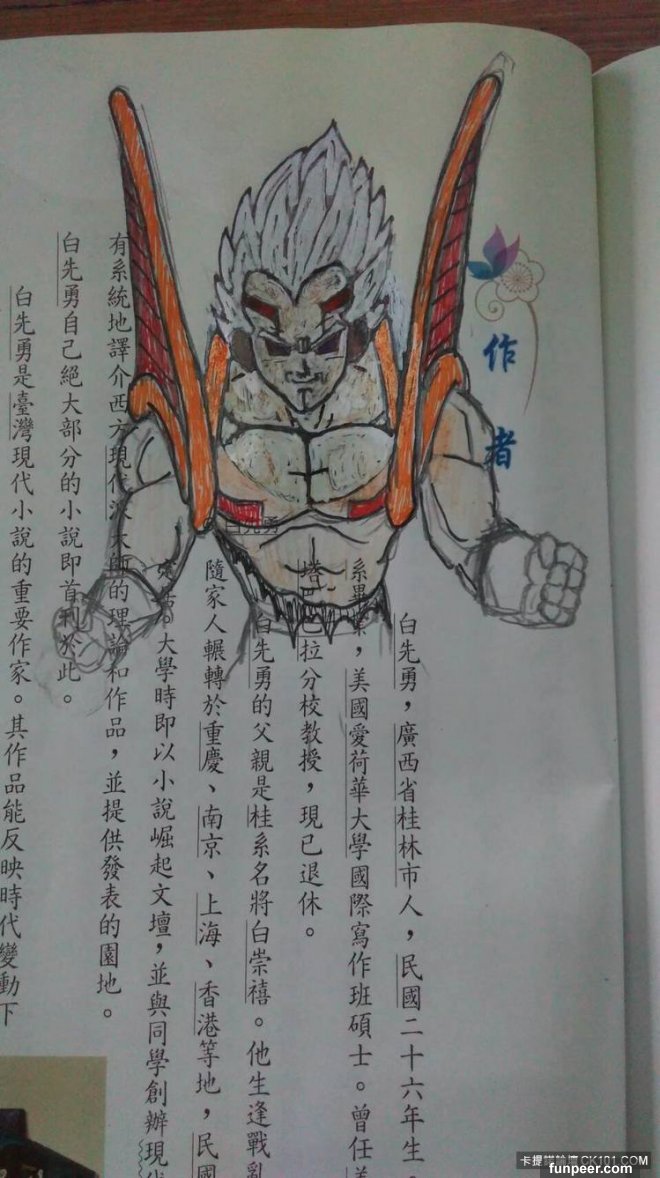 作者
白先勇
白先勇，廣西省桂林市人，民國二十六年生。
系畢業，美國愛荷華大學國際寫作班碩士。曾任美
塔芭芭拉分校教授，現已退休。
白先勇的父親是桂系名將白崇禧。他生逢戰亂
隨家人輾轉於重慶、南京、上海、香港等地，民國
定居。大學時即以小說崛起文壇，並與同學創辦現代
有系統地譯介西方現代派大師的理論和作品，並提供發表的園地。
白先勇自己絕大部分的小說即首刊於此。
白先勇是臺灣現代小說的重要作家。其作品能反映時代變動下
卡提諾論壇 CK101.COM
funpeer.com